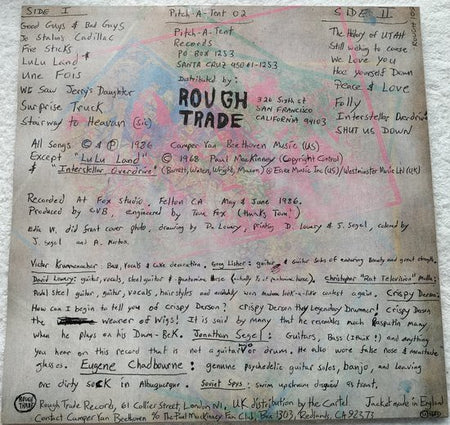 SIDE I
Good Guys & Bad Guys
Jo Stalin's Cadillac
Five Sticks
LuLu Land
Une Fois
WE Saw Jerry's Daughter
Surprise Truck
Stairway to Heavan (sic)
Pitch-A-Tent 02
Pitch-A-Tent
Records
PO BOX 1253
SANTA CRUZ 95061-1253
Distributed by:
ROUGH
TRADE
326 Sixth st
SAN FRANCISCO
CALIFORNIA 94103
SIDE II
The History of UTAH
Still wishing to course
We Love You
Hoe yourself Down
Peace & Love
Folly
Interstellar Overdrive
SHUT US DOWN
All Songs © & ℗ - 1986 Camper Van Beethoven Music (US)
Except "LuLu Land" © 1968 Paul MacKinney (Copyright Control)
& "Interstellar Overdrive" (Barrett, Waters, Wright, Mason) © Music Inc (US)/Westminster Music Ltd (UK)
Recorded At Fox Studio, Felton CA May & June 1986.
Produced by CVB, engineered by Tom Fox (thanks Tom!)
Edie W. did front cover photo, drawing by D. Lowery, printing D. Lowery & J. Segel, colored by
J. Segel and A.
Victor Krummenacher: Bass, vocals & cake decoration. Greg Lisher: guitar & guitar solos of enduring beauty and great strength.
David Lowery: guitar, vocals, steel guitar &
Christopher "Rat Television" Molla:
Pedal steel guitar, guitar, vocals, hairstyles and look-a-like contest again. Crispy Derson?
How can I begin to tell you of crispy Derson? crispy Derson They Legendary Drummer! Crispy Derson
the weaver of Wigs! It is said by many that he resembles much Rasputin many
when he plays on his Dum-Bek. Jonathan Segel: Guitars, Bass and anything
you hear on this record that is not a guitar or drum. He also wore false nose & moustache
glasses. Eugene Chadbourne: genuine psychedelic guitar solos, banjo, and leaving
one dirty sock in Albuquerque. Soviet Spys: swim upstream disguised as trout.
ROUGH
TRADE
Rough Trade Records, 61 Collier Street, London N1, UK distribution by the Cartel Jacket made in England
Contact Camper Van Beethoven % The Paul Mackinney Fan Club, Box 1303, Redlands, CA 92373